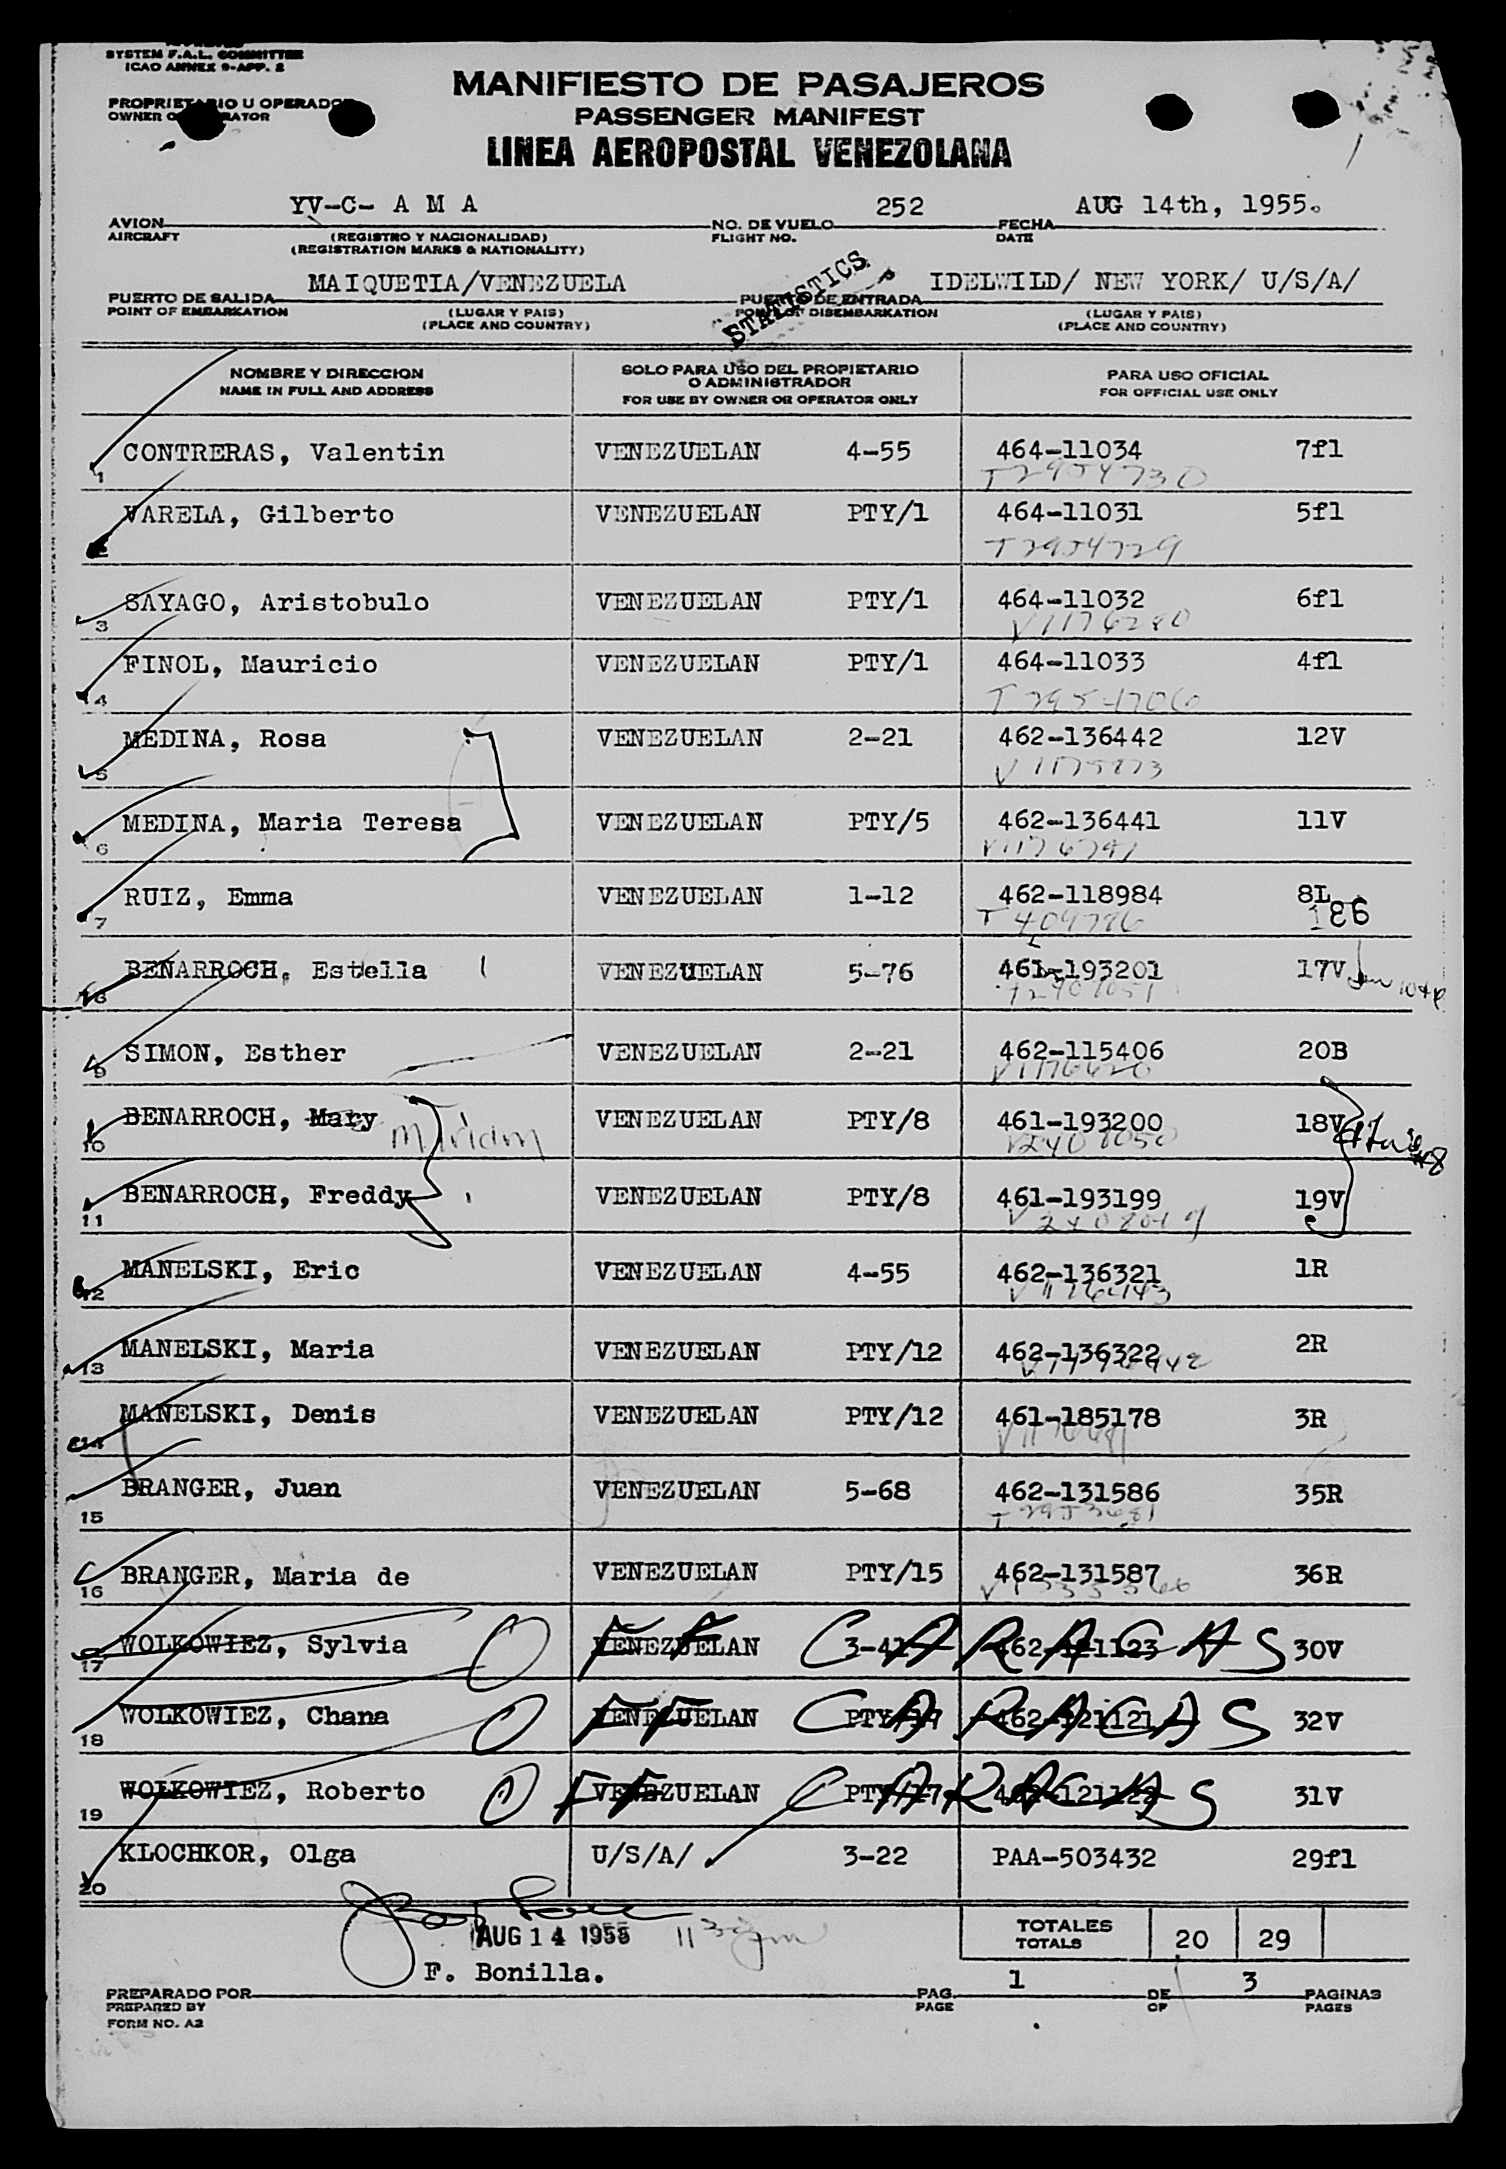 SYSTEM F.A.L. COMMITTEE
ICAO ANNEX 9-APP. 2
MANIFIESTO DE PASAJEROS
PROPRIETARIO U OPERADOR
OWNER OR OPERATOR
PASSENGER MANIFEST
LINEA AEROPOSTAL VENEZOLANA
YV-C- A M A 252 AUG 14th, 1955.
AVION NO. DE VUELO FECHA
AIRCRAFT (REGISTRO Y NACIONALIDAD) FLIGHT NO. DATE
(REGISTRATION MARKS & NATIONALITY)
STATISTICS
MAIQUETIA/VENEZUELA IDELWILD/ NEW YORK/ U/S/A/
PUERTO DE SALIDA PUERTO DE ENTRADA
POINT OF EMBARKATION (LUGAR Y PAIS) POINT OF DISEMBARKATION (LUGAR Y PAIS)
(PLACE AND COUNTRY) (PLACE AND COUNTRY)
NOMBRE Y DIRECCION SOLO PARA USO DEL PROPIETARIO PARA USO OFICIAL
O ADMINISTRADOR
NAME IN FULL AND ADDRESS FOR USE BY OWNER OR OPERATOR ONLY FOR OFFICIAL USE ONLY
CONTRERAS, Valentin VENEZUELAN 4-55 464-11034 7fl
1 T2954730
VARELA, Gilberto VENEZUELAN PTY/1 464-11031 5fl
2 T2954729
SAYAGO, Aristobulo VENEZUELAN PTY/1 464-11032 6fl
3 V1176280
FINOL, Mauricio VENEZUELAN PTY/1 464-11033 4fl
4
MEDINA, Rosa VENEZUELAN 2-21 462-136442 12V
5 V1175873
MEDINA, Maria Teresa VENEZUELAN PTY/5 462-136441 11V
6
RUIZ, Emma VENEZUELAN 1-12 462-118984 8L
7 186
BENARROCH, Estella VENEZUELAN 5-76 461-193201 17V
8
SIMON, Esther VENEZUELAN 2-21 462-115406 20B
9 V1176620
BENARROCH, Mary Miriam VENEZUELAN PTY/8 461-193200 18V
10 V2408050
BENARROCH, Freddy VENEZUELAN PTY/8 461-193199 19V
11 V2408049
MANELSKI, Eric VENEZUELAN 4-55 462-136321 1R
12
MANELSKI, Maria VENEZUELAN PTY/12 462-136322 2R
13
MANELSKI, Denis VENEZUELAN PTY/12 461-185178 3R
14
BRANGER, Juan VENEZUELAN 5-68 462-131586 35R
15
BRANGER, Maria de VENEZUELAN PTY/15 462-131587 36R
16
WOLKOWIEZ, Sylvia VENEZUELAN 3-41 462-121123 30V
17 OFF CARACAS
WOLKOWIEZ, Chana VENEZUELAN PTY/17 462-121121 32V
18 OFF CARACAS
WOLKOWIEZ, Roberto VENEZUELAN PTY/17 462-121122 31V
19 OFF CARACAS
KLOCHKOR, Olga U/S/A/ 3-22 PAA-503432 29fl
20
TOTALES
TOTALS 20 29
AUG 14 1955 11 30 pm
F. Bonilla.
PREPARADO POR PAG. 1 DE 3 PAGINAS
PREPARED BY PAGE OF PAGES
FORM NO. A2